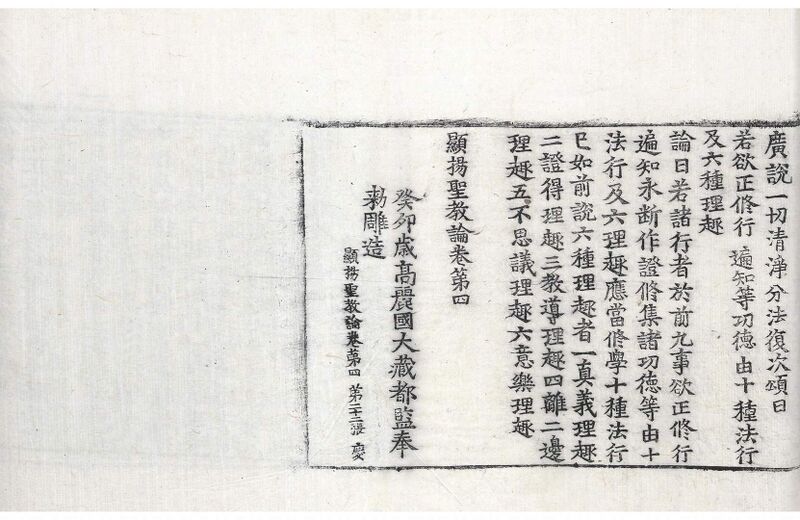 廣說一切清淨分法復次頌曰
若欲正修行 遍知等功德 由十種法行
及六種理趣
論曰若諸行者於前九事欲正修行
遍知永断作證修集諸功德等由十
法行及六理趣應當修學十種法行
已如前說六種理趣者一真義理趣
二證得理趣三教導理趣四離二邊
理趣五不思議理趣六意樂理趣
顯揚聖教論卷第四
癸卯歲高麗國大藏都監奉
勅雕造
顯揚聖教論卷第四 第二十三張 慶